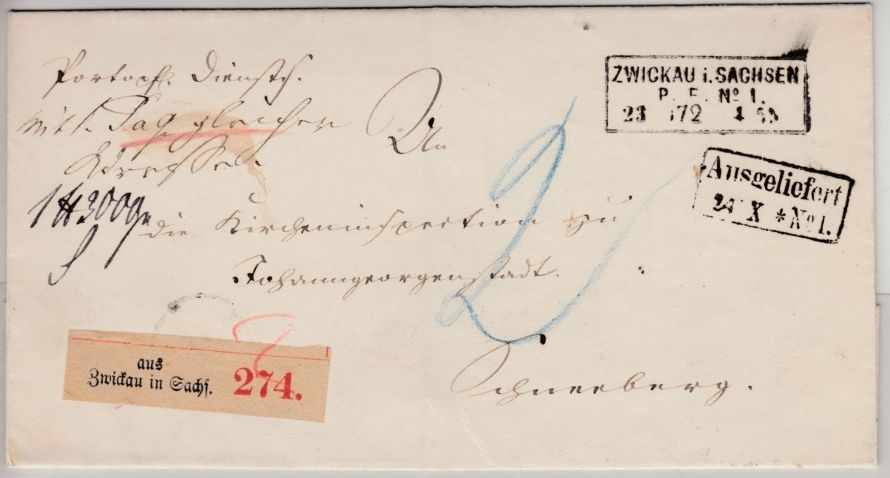 Portopfl. Diensts.
mit 1. Pag gleicher
Adresse.
1 ℔ 300 gr
An
die Kircheninspection zu
Johanngeorgenstadt.
Schneeberg.
2
ZWICKAU i. SACHSEN
P. E. № 1.
23 72 4
Ausgeliefert
24 X * № 1.
aus
Zwickau in Sachs. 274.